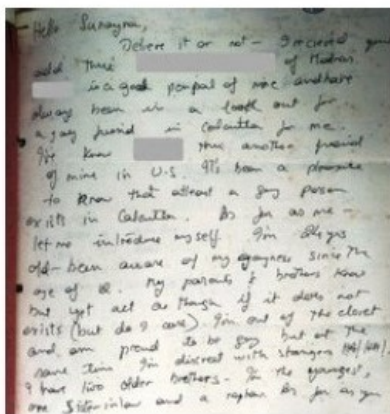 Hello Sunayna,
Believe it or not - I received your
add thru of Madras.
is a good penpal of mine and have
always been in a look out for
a gay friend in Calcutta for me.
I've know thru another friend
of mine in U.S. It's been a pleasure
to know that atleast a gay person
exists in Calcutta. As for as me -
let me introduce myself. I'm yrs
old - been aware of my gayness since the
age of My parents & brothers know
but yet act as though if it does not
exists (but do I care) I'm out of the closet
and am proud to be gay but at the
same time I'm discreet with strangers
I have two older brothers - I'm the youngest,
one Sister inlaw and a nephew As for as you